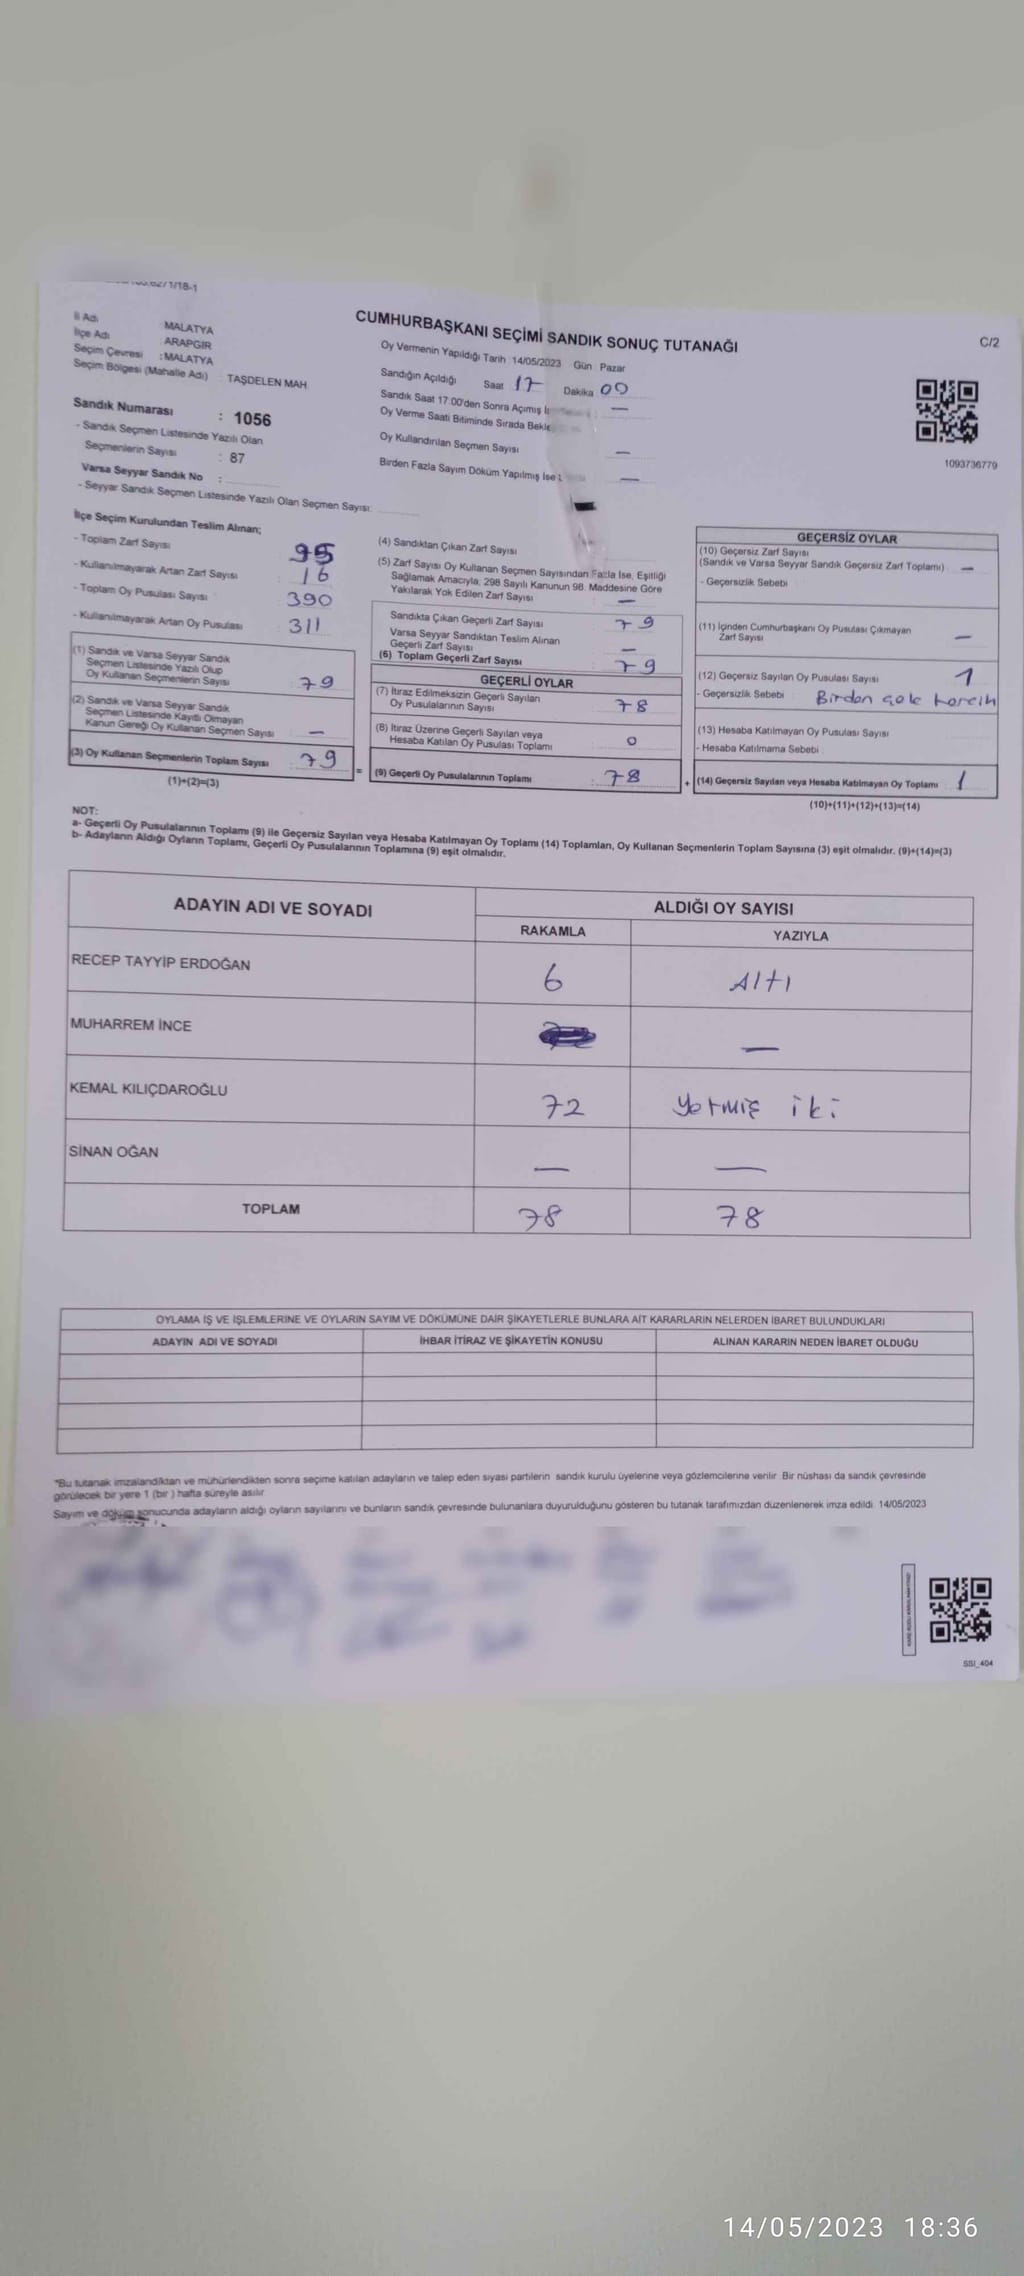 /1/18-1
İl Adı : MALATYA
İlçe Adı : ARAPGİR
Seçim Çevresi : MALATYA
Seçim Bölgesi (Mahalle Adı) : TAŞDELEN MAH.
Sandık Numarası : 1056
- Sandık Seçmen Listesinde Yazılı Olan
Seçmenlerin Sayısı : 87
Varsa Seyyar Sandık No :
- Seyyar Sandık Seçmen Listesinde Yazılı Olan Seçmen Sayısı:
CUMHURBAŞKANI SEÇİMİ SANDIK SONUÇ TUTANAĞI
Oy Vermenin Yapıldığı Tarih 14/05/2023 Gün Pazar
Sandığın Açıldığı Saat 17 Dakika 00
Sandık Saat 17:00'den Sonra Açımış —
Oy Verme Saati Bitiminde Sırada
Oy Kullandırılan Seçmen Sayısı —
Birden Fazla Sayım Döküm Yapılmış İse —
C/2
1093736779
İlçe Seçim Kurulundan Teslim Alınan;
- Toplam Zarf Sayısı 95
- Kullanılmayarak Artan Zarf Sayısı 16
- Toplam Oy Pusulası Sayısı 390
- Kullanılmayarak Artan Oy Pusulası 311
(1) Sandık ve Varsa Seyyar Sandık
Seçmen Listesinde Yazılı Olup
Oy Kullanan Seçmenlerin Sayısı : 79
(2) Sandık ve Varsa Seyyar Sandık
Seçmen Listesinde Kayıtlı Olmayan
Kanun Gereği Oy Kullanan Seçmen Sayısı : —
(3) Oy Kullanan Seçmenlerin Toplam Sayısı : 79
(1)+(2)=(3)
=
(4) Sandıktan Çıkan Zarf Sayısı
(5) Zarf Sayısı Oy Kullanan Seçmen Sayısından Fazla İse, Eşitliği
Sağlamak Amacıyla; 298 Sayılı Kanunun 98. Maddesine Göre
Yakılarak Yok Edilen Zarf Sayısı : —
Sandıkta Çıkan Geçerli Zarf Sayısı : 79
Varsa Seyyar Sandıktan Teslim Alınan
Geçerli Zarf Sayısı : —
(6) Toplam Geçerli Zarf Sayısı : 79
GEÇERLİ OYLAR
(7) İtiraz Edilmeksizin Geçerli Sayılan
Oy Pusulalarının Sayısı : 78
(8) İtiraz Üzerine Geçerli Sayılan veya
Hesaba Katılan Oy Pusulası Toplamı : 0
(9) Geçerli Oy Pusulalarının Toplamı : 78
+
GEÇERSİZ OYLAR
(10) Geçersiz Zarf Sayısı
(Sandık ve Varsa Seyyar Sandık Geçersiz Zarf Toplamı) : —
- Geçersizlik Sebebi
(11) İçinden Cumhurbaşkanı Oy Pusulası Çıkmayan
Zarf Sayısı —
(12) Geçersiz Sayılan Oy Pusulası Sayısı 1
- Geçersizlik Sebebi : Birden çok tercih
(13) Hesaba Katılmayan Oy Pusulası Sayısı
- Hesaba Katılmama Sebebi
(14) Geçersiz Sayılan veya Hesaba Katılmayan Oy Toplamı : 1
(10)+(11)+(12)+(13)=(14)
NOT:
a- Geçerli Oy Pusulalarının Toplamı (9) ile Geçersiz Sayılan veya Hesaba Katılmayan Oy Toplamı (14) Toplamları, Oy Kullanan Seçmenlerin Toplam Sayısına (3) eşit olmalıdır. (9)+(14)=(3)
b- Adayların Aldığı Oyların Toplamı, Geçerli Oy Pusulalarının Toplamına (9) eşit olmalıdır.
ADAYIN ADI VE SOYADI
ALDIĞI OY SAYISI
RAKAMLA YAZIYLA
RECEP TAYYİP ERDOĞAN 6 Altı
MUHARREM İNCE —
KEMAL KILIÇDAROĞLU 72 yetmiş iki
SİNAN OĞAN — —
TOPLAM 78 78
OYLAMA İŞ VE İŞLEMLERİNE VE OYLARIN SAYIM VE DÖKÜMÜNE DAİR ŞİKAYETLERLE BUNLARA AİT KARARLARIN NELERDEN İBARET BULUNDUKLARI
ADAYIN ADI VE SOYADI İHBAR İTİRAZ VE ŞİKAYETİN KONUSU ALINAN KARARIN NEDEN İBARET OLDUĞU
*Bu tutanak imzalandıktan ve mühürlendikten sonra seçime katılan adayların ve talep eden siyasi partilerin sandık kurulu üyelerine veya gözlemcilerine verilir. Bir nüshası da sandık çevresinde
görülecek bir yere 1 (bir ) hafta süreyle asılır.
Sayım ve döküm sonucunda adayların aldığı oyların sayılarını ve bunların sandık çevresinde bulunanlara duyurulduğunu gösteren bu tutanak tarafımızdan düzenlenerek imza edildi. 14/05/2023
SSI_404
14/05/2023 18:36